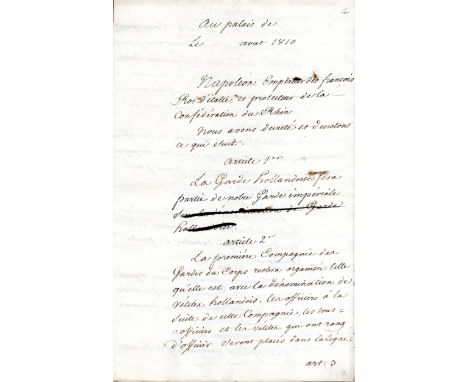 au palais de
Le aout 1810
Napoleon Empereur des français
Roi d'italie, et protecteur de la
Confédération du Rhin
Nous avons decreté et decretons
ce qui suit.
article 1er
La Garde hollandoise fera
partie de notre Garde impériale
sous la dénomination de Garde
hollandoise
article 2e
La première Compagnie des
Gardes du Corps restera organisée telle
qu'elle est, avec la dénomination de
vélites hollandois. les officiers à la
suite de cette Compagnie, les sous-
-officiers et les vélites qui ont rang
d'officier seront placés dans la ligne.
art. 3